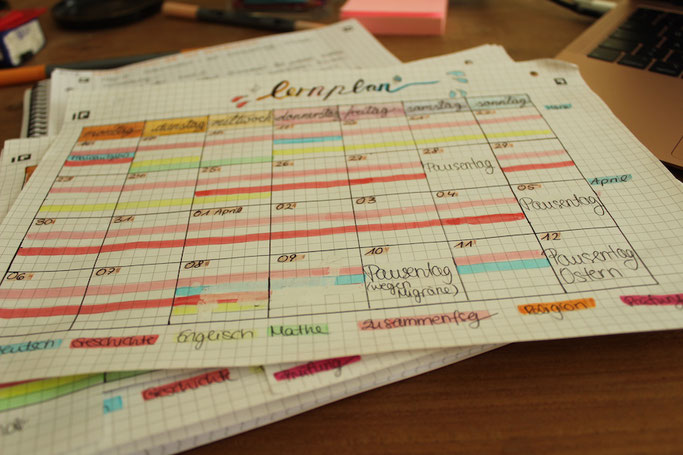 Lernplan
montag dienstag mittwoch donnerstag freitag samstag sonntag
25. 26. 27. 28. 29.
Pausentag
April
30. 31. 01 April 02. 03 04 05
Pausentag
06 07 08 09 10 11 12
Pausentag
(wegen
Migräne)
Pausentag
Ostern
eutsch Geschichte Englisch Mathe Zusammenfsg Prüfung
Geschichte Prüfung